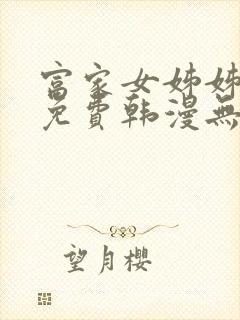 富家女姊姊
免費韩漫無
望月櫻